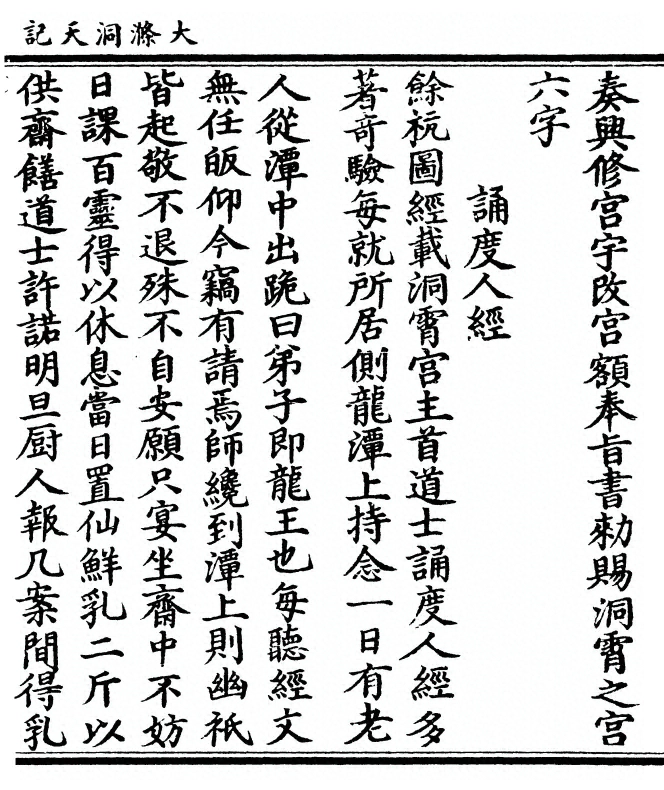 大滌洞天記
奏興修宮宇改宮額奉旨書勑賜洞霄之宮
六字
誦度人經
餘杭圖經載洞霄宮主首道士誦度人經多
著竒驗每就所居側龍潭上持念一日有老
人從潭中出跪曰弟子即龍王也每聽經文
無任皈仰今竊有請焉師纔到潭上則幽祇
皆起敬不退殊不自安願只宴坐齋中不妨
日課百靈得以休息當日置仙鮮乳二斤以
供齋饍道士許諾明旦厨人報几案間得乳